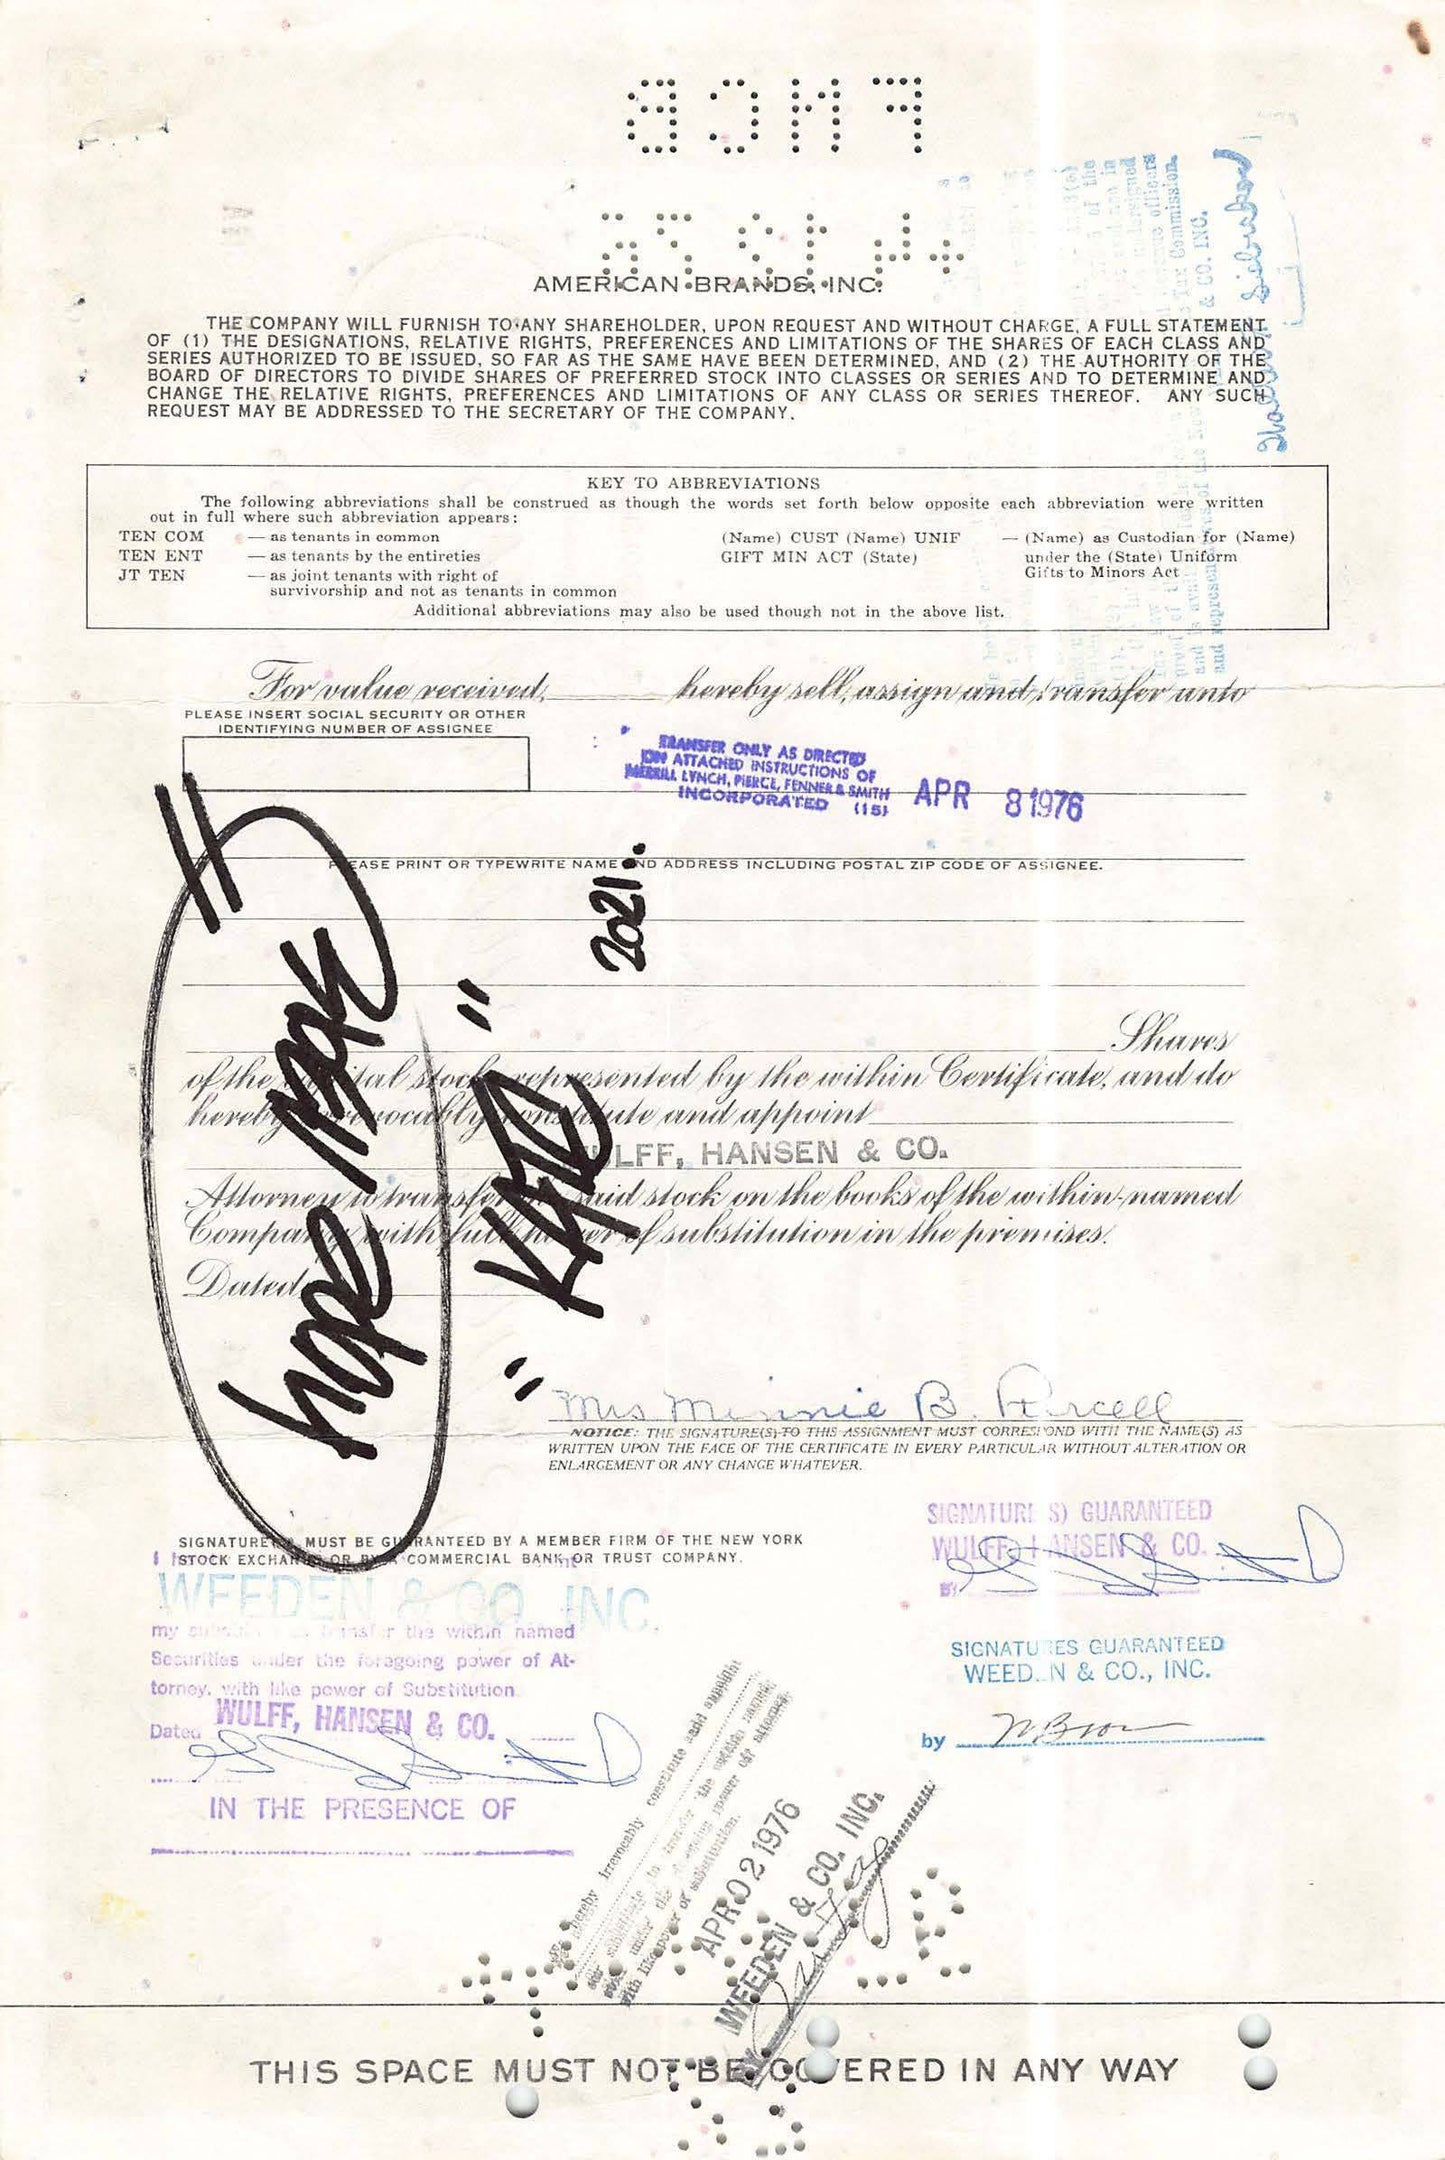 AMERICAN BRANDS, INC.
THE COMPANY WILL FURNISH TO ANY SHAREHOLDER, UPON REQUEST AND WITHOUT CHARGE, A FULL STATEMENT
OF (1) THE DESIGNATIONS, RELATIVE RIGHTS, PREFERENCES AND LIMITATIONS OF THE SHARES OF EACH CLASS AND
SERIES AUTHORIZED TO BE ISSUED, SO FAR AS THE SAME HAVE BEEN DETERMINED, AND (2) THE AUTHORITY OF THE
BOARD OF DIRECTORS TO DIVIDE SHARES OF PREFERRED STOCK INTO CLASSES OR SERIES AND TO DETERMINE AND
CHANGE THE RELATIVE RIGHTS, PREFERENCES AND LIMITATIONS OF ANY CLASS OR SERIES THEREOF. ANY SUCH
REQUEST MAY BE ADDRESSED TO THE SECRETARY OF THE COMPANY.
Tax Commission.
& CO. INC.
KEY TO ABBREVIATIONS
The following abbreviations shall be construed as though the words set forth below opposite each abbreviation were written
out in full where such abbreviation appears:
TEN COM — as tenants in common (Name) CUST (Name) UNIF — (Name) as Custodian for (Name)
TEN ENT — as tenants by the entireties GIFT MIN ACT (State) under the (State) Uniform
JT TEN — as joint tenants with right of Gifts to Minors Act
survivorship and not as tenants in common
Additional abbreviations may also be used though not in the above list.
For value received, hereby sell, assign and transfer unto
PLEASE INSERT SOCIAL SECURITY OR OTHER
IDENTIFYING NUMBER OF ASSIGNEE
TRANSFER ONLY AS DIRECTED
ON ATTACHED INSTRUCTIONS OF
MERRILL LYNCH, PIERCE, FENNER & SMITH
INCORPORATED (15)
APR 8 1976
PLEASE PRINT OR TYPEWRITE NAME AND ADDRESS INCLUDING POSTAL ZIP CODE OF ASSIGNEE.
2021
Shares
of the capital stock represented by the within Certificate, and do
hereby irrevocably constitute and appoint
WULFF, HANSEN & CO.
Attorney to transfer the said stock on the books of the within-named
Company with full power of substitution in the premises.
Dated
Mrs Minnie B. Purcell
NOTICE: THE SIGNATURE(S) TO THIS ASSIGNMENT MUST CORRESPOND WITH THE NAME(S) AS
WRITTEN UPON THE FACE OF THE CERTIFICATE IN EVERY PARTICULAR WITHOUT ALTERATION OR
ENLARGEMENT OR ANY CHANGE WHATEVER.
SIGNATURE(S) MUST BE GUARANTEED BY A MEMBER FIRM OF THE NEW YORK
STOCK EXCHANGE OR BY A COMMERCIAL BANK OR TRUST COMPANY.
SIGNATURE(S) GUARANTEED
WULFF, HANSEN & CO.
BY
WEEDEN & CO. INC.
my substitute to transfer the within named
Securities under the foregoing power of At-
torney, with like power of Substitution
Dated WULFF, HANSEN & CO.
IN THE PRESENCE OF
SIGNATURES GUARANTEED
WEEDEN & CO., INC.
by
hereby irrevocably constitute and appoint
substitute to transfer the within named
under the foregoing power of attorney,
with like power of substitution.
APR 02 1976
WEEDEN & CO. INC.
THIS SPACE MUST NOT BE COVERED IN ANY WAY